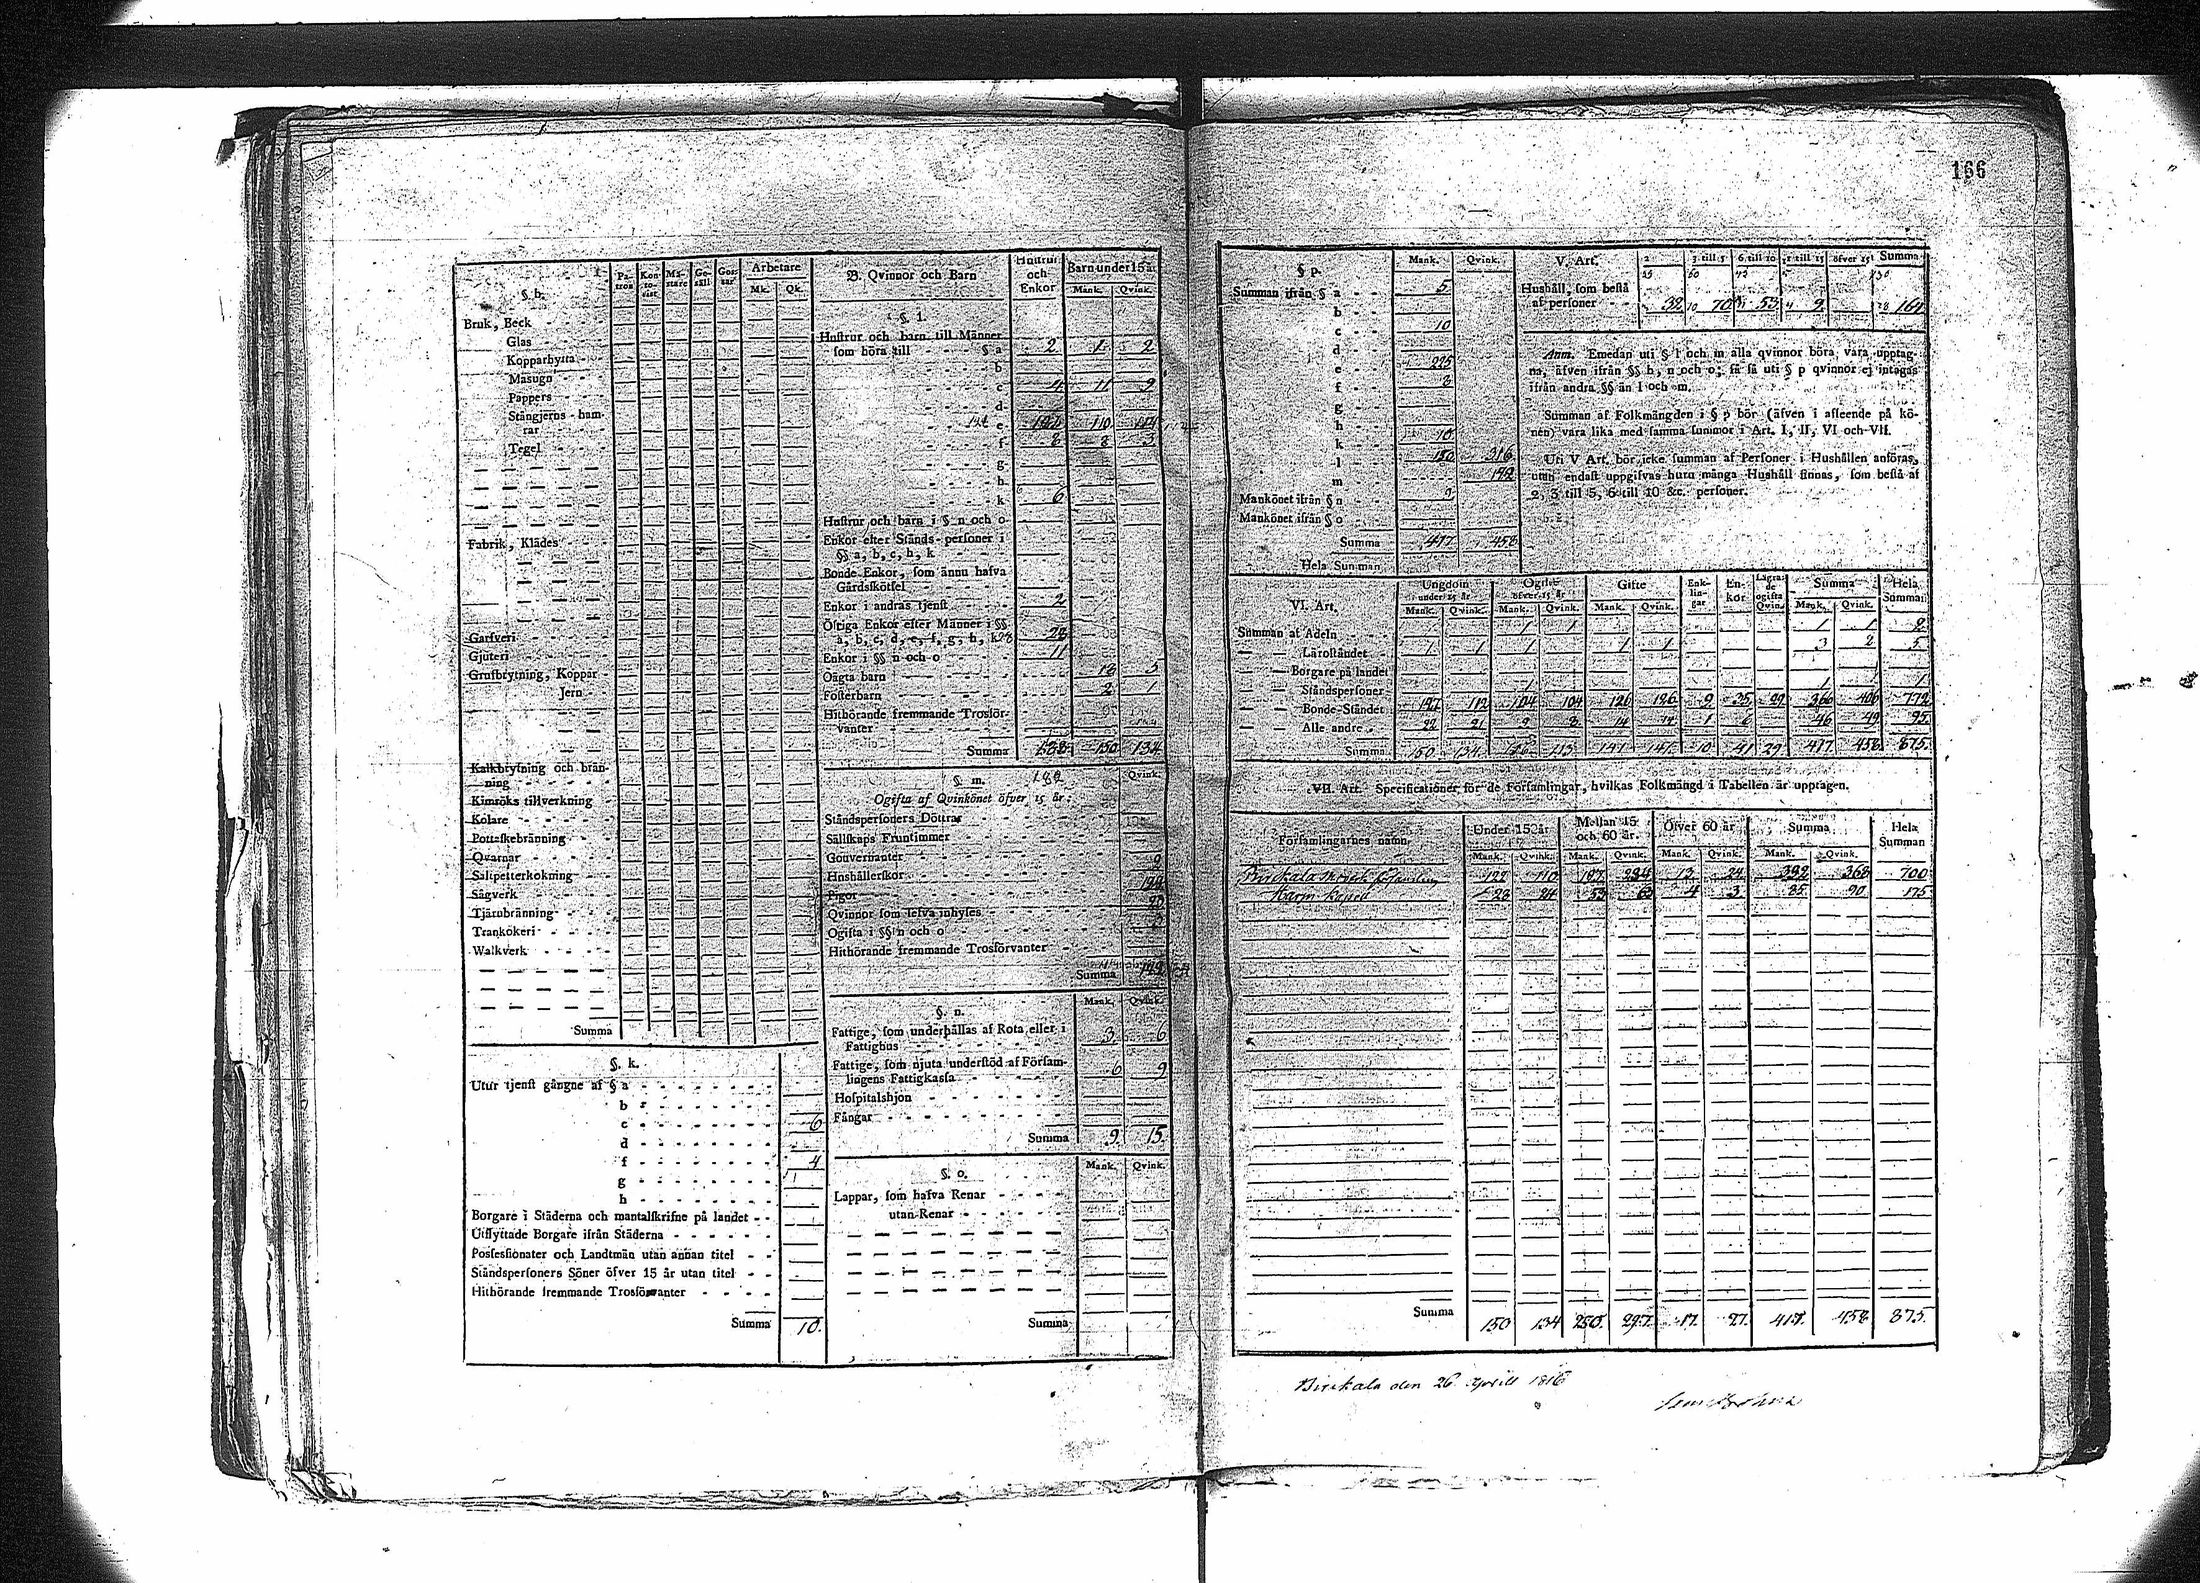 166
§ b.
Pa-
tron
Kon-
to-
rist
Mä-
stare
Ge-
säll
Gos-
sar
Arbetare
Mk. Qk.
Bruk, Beck
Glas
Kopparhytta
Masugn
Pappers
Stångjerns-ham-
rar
Tegel
Fabrik, Klädes
Garfveri
Gjuteri
Grufbrytning, Koppar
Jern
Kalkbrytning och brän-
ning
Kimröks tillverkning
Kolare
Pottaskebränning
Qvarnar
Saltpetterkokning
Sågverk
Tjärubränning
Trankokeri
Walkverk
Summa
§. k.
Utur tjenst gångne af § a
b
c 6
d
f 4
g
h
Borgare i Städerna och mantalskrifne på landet
Utflyttade Borgare ifrån Städerna
Possessionater och Landtmän utan annan titel
Ståndspersoners Söner öfver 15 år utan titel
Hithörande fremmande Trosförvanter
Summa 10.
B. Qvinnor och Barn
Hustrur
och
Enkor
Barn under 15 år
Mank. Qvink.
§ l.
Hustrur och barn till Männer
som höra till § a 2 1 2
b
c 4 11 9
d
e 110 114
f 8 8 3
g
h
k 6
Hustrur och barn i § n och o
Enkor efter Stånds-personer i
§§ a, b, c, h, k
Bonde-Enkor, som ännu hafva
Gårdsskötsel
Enkor i andras tjenst 2
Öfriga Enkor efter Männer i §§
a, b, c, d, e, f, g, h, k 28
Enkor i §§ n och o 11
Oägta barn 18 5
Fosterbarn 2 1
Hithörande fremmande Trosför-
vanter
Summa 150 134
§. m. 182 Qvink.
Ogifta af Qvinkönet öfver 15 år:
Ståndspersoners Döttrar
Sällskaps Fruntimmer
Gouvernanter
Hushållerskor
Pigor
Qvinnor som lefva inhyses
Ogifta i §§ n och o
Hithörande fremmande Trosförvanter
Summa 142
§. n. Mank. Qvink.
Fattige, som underhållas af Rota eller i
Fattighus 3 6
Fattige, som njuta understöd af Försam-
lingens Fattigkassa 6 9
Hospitalshjon
Fångar
Summa 9 15
§. o. Mank. Qvink.
Lappar, som hafva Renar
utan Renar
Summa
§ p. Mank. Qvink.
Summan ifrån § a 5
b
c 10
d
e 225
f 8
g
h
k 10
l 150 316
m 142
Mankönet ifrån § n 9
Mankönet ifrån § o
Summa 417 458
Hela Summan
V. Art. 2 3 till 5 6 till 10 11 till 15 öfver 15 Summa
Hushåll, som bestå
af personer 32 70 53 9 164
Anm. Emedan uti § l och m alla qvinnor böra vara upptag-
na, äfven ifrån §§ b, n och o; så få uti § p qvinnor ej intagas
ifrån andra §§ än l och m.
Summan af Folkmängden i § p bör (äfven i afseende på kö-
nen) vara lika med samma summor i Art. I, II, VI och VII.
Uti V Art. bör icke summan af Personer i Hushållen anföras,
utan endast uppgifvas huru många Hushåll finnas, som bestå af
2, 3 till 5, 6 till 10 &c. personer.
VI. Art.
Ungdom
under 15 år
Ogifte
öfver 15 år
Gifte
Enk-
lin-
gar
En-
kor
Lägra-
de
ogifta
Qvin.
Summa
Hela
Summan
Mank. Qvink. Mank. Qvink. Mank. Qvink. Mank. Qvink.
Summan af Adeln 1 1 1 1 2
Läroståndet 1 1 1 1 1 3 2 5
Borgare på landet
Ståndspersoner 1 1 1
Bonde-Ståndet 127 112 104 104 126 126 9 35 29 366 406 772
Alle andre 22 21 9 8 14 14 1 6 46 49 95
Summa 150 134 113 141 141 10 41 29 417 458 875
VII. Art. Specificationer för de Församlingar, hvilkas Folkmängd i Tabellen är upptagen.
Församlingarnes namn.
Under 15 år
Mellan 15
och 60 år.
Öfver 60 år
Summa
Hela
Summan
Mank. Qvink. Mank. Qvink. Mank. Qvink. Mank. Qvink.
Birckala 122 110 197 234 13 24 332 368 700
28 24 53 63 4 3 85 90 175
Summa 150 134 250 297 17 27 417 458 875
Birckala den 26 Aprill 1816